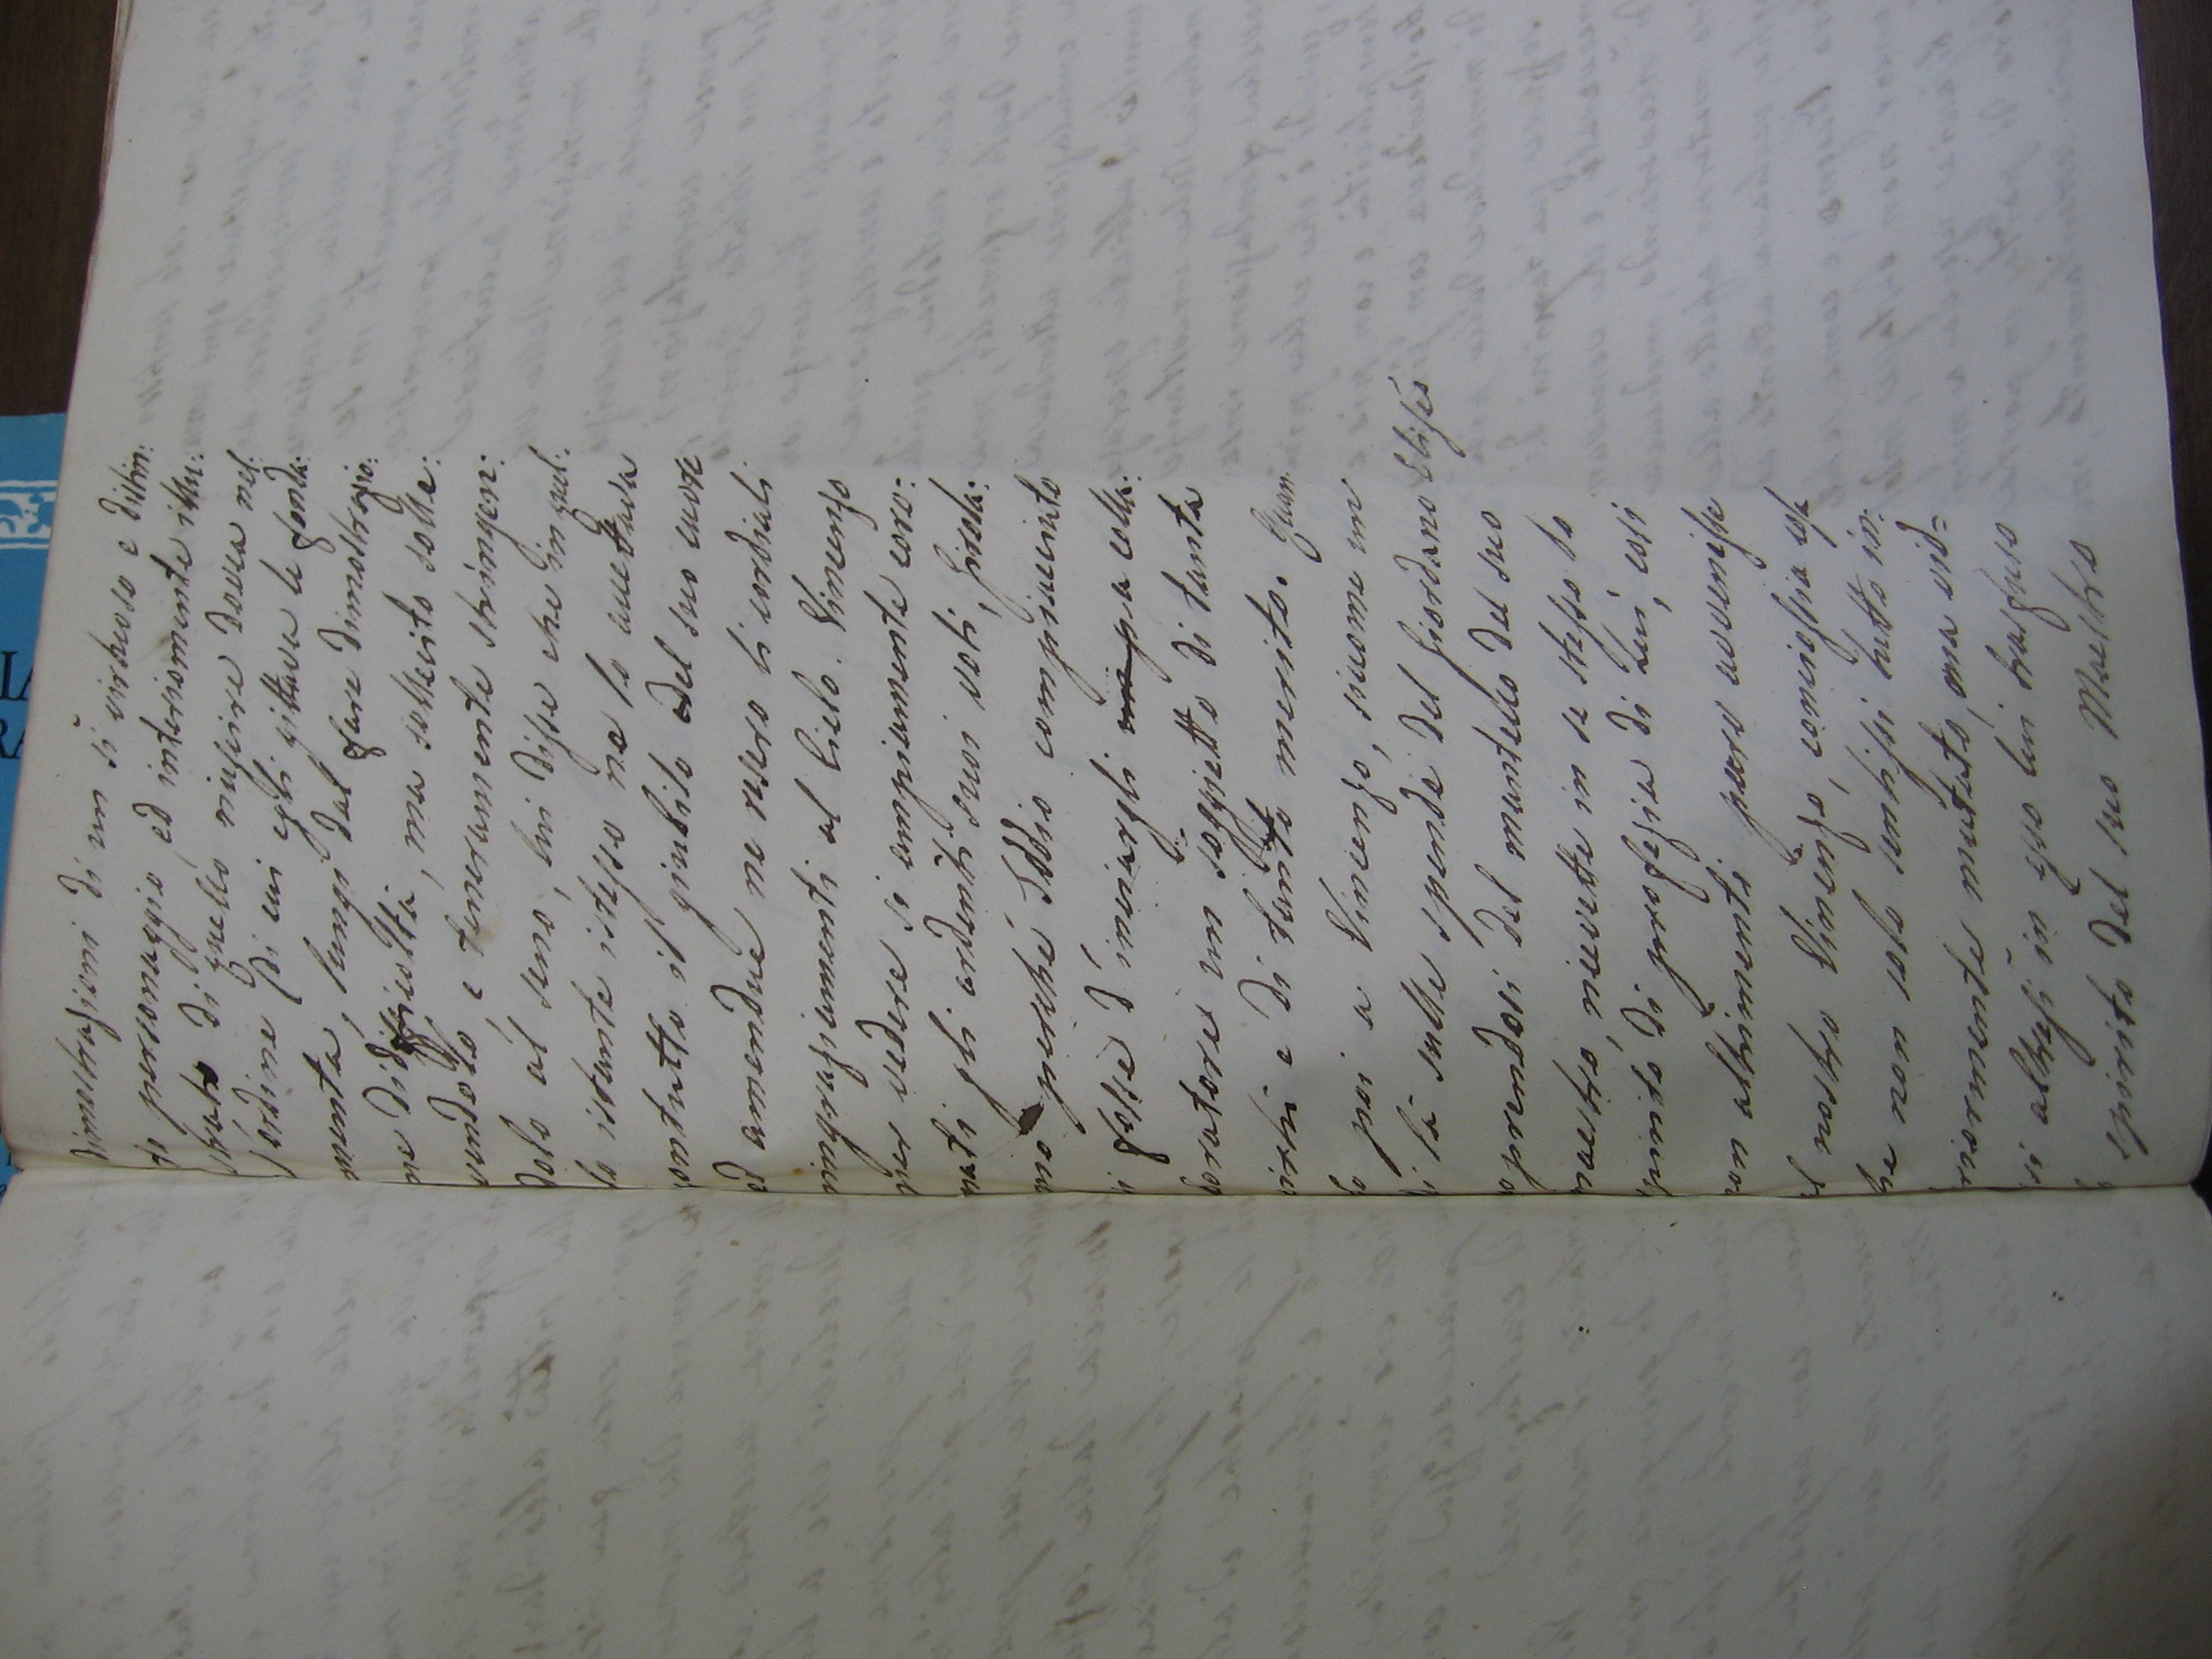 dimostrazioni di un sì virtuoso e distin:
to personaggio, ed interiormente illu:
strato di quello riuscire dovea nel:
l'ordine di cui egli gittava le fonda:
menta, lungi dal fare dimostrazio:
ne di ma sollevito solle:
vandolo, e teneramente stringen:
dolo al seno, lui disse che in quel:
lo istante istesso ne lo accettava
contratto il giubilo del suo cuore
ed amendue ne resero li cordiali
ringraziamenti al Cielo. Vincenzo
per vedere sì ampiamente coro:
nati gli ardenti suoi voti,
no perchè Iddio compiaciuto
si fosse d'inviargli pa colla:
boratore un soggetto di tanta
virtù e di tanto merito. Quan
do poi a Vincenzo, siccome un
dì là sulle sponde del Giordano Eliseo
apprendosi del mantello del suo
maestro, ricevette in se stesso lo
spirito di profezia di lui, così
non altrimenti parve avvenisse
al nostro Vincenzo, conciossia cosa
che non solo sentissi tutto in:
teriormente mutato, ma vid=
si altresì in esso lui trasfuso
lo spirito del suo Maestro